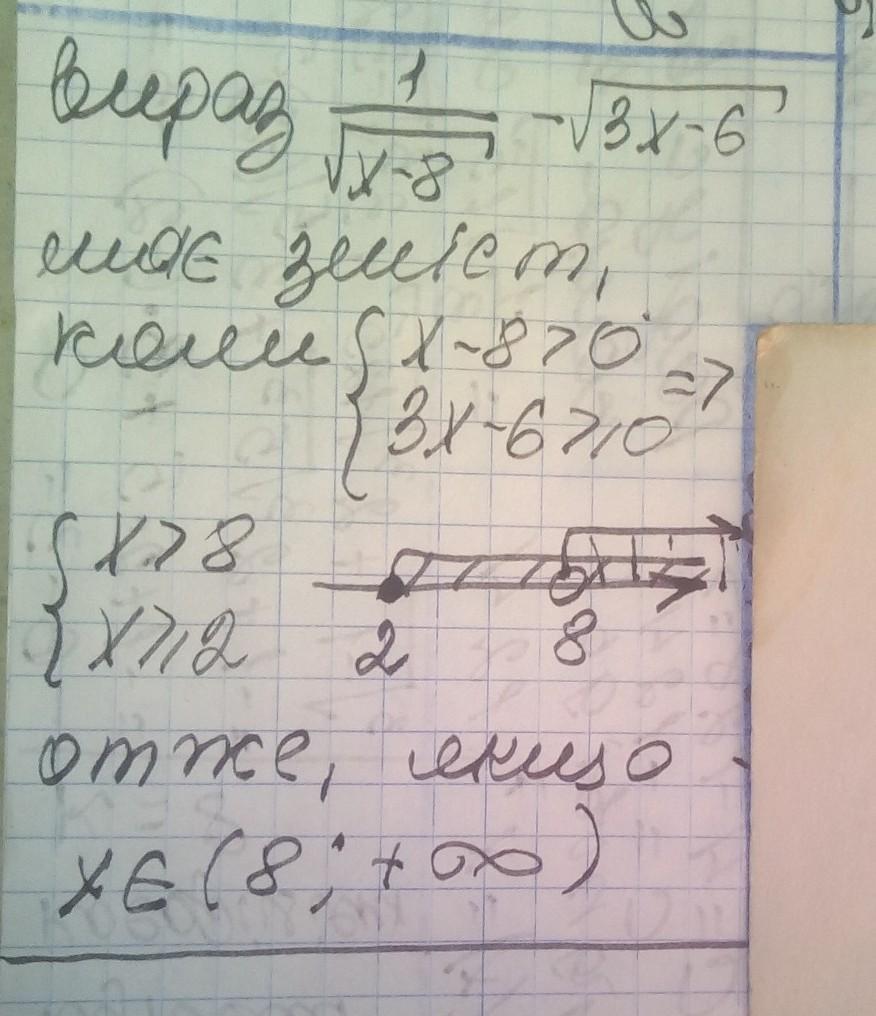 вираз 1/√(x-8) - √(3x-6)
має зміст,
коли { x-8>0
3x-6⩾0 =>
{ x>8
x⩾2
2 8
отже, якщо
x∈(8;+∞)